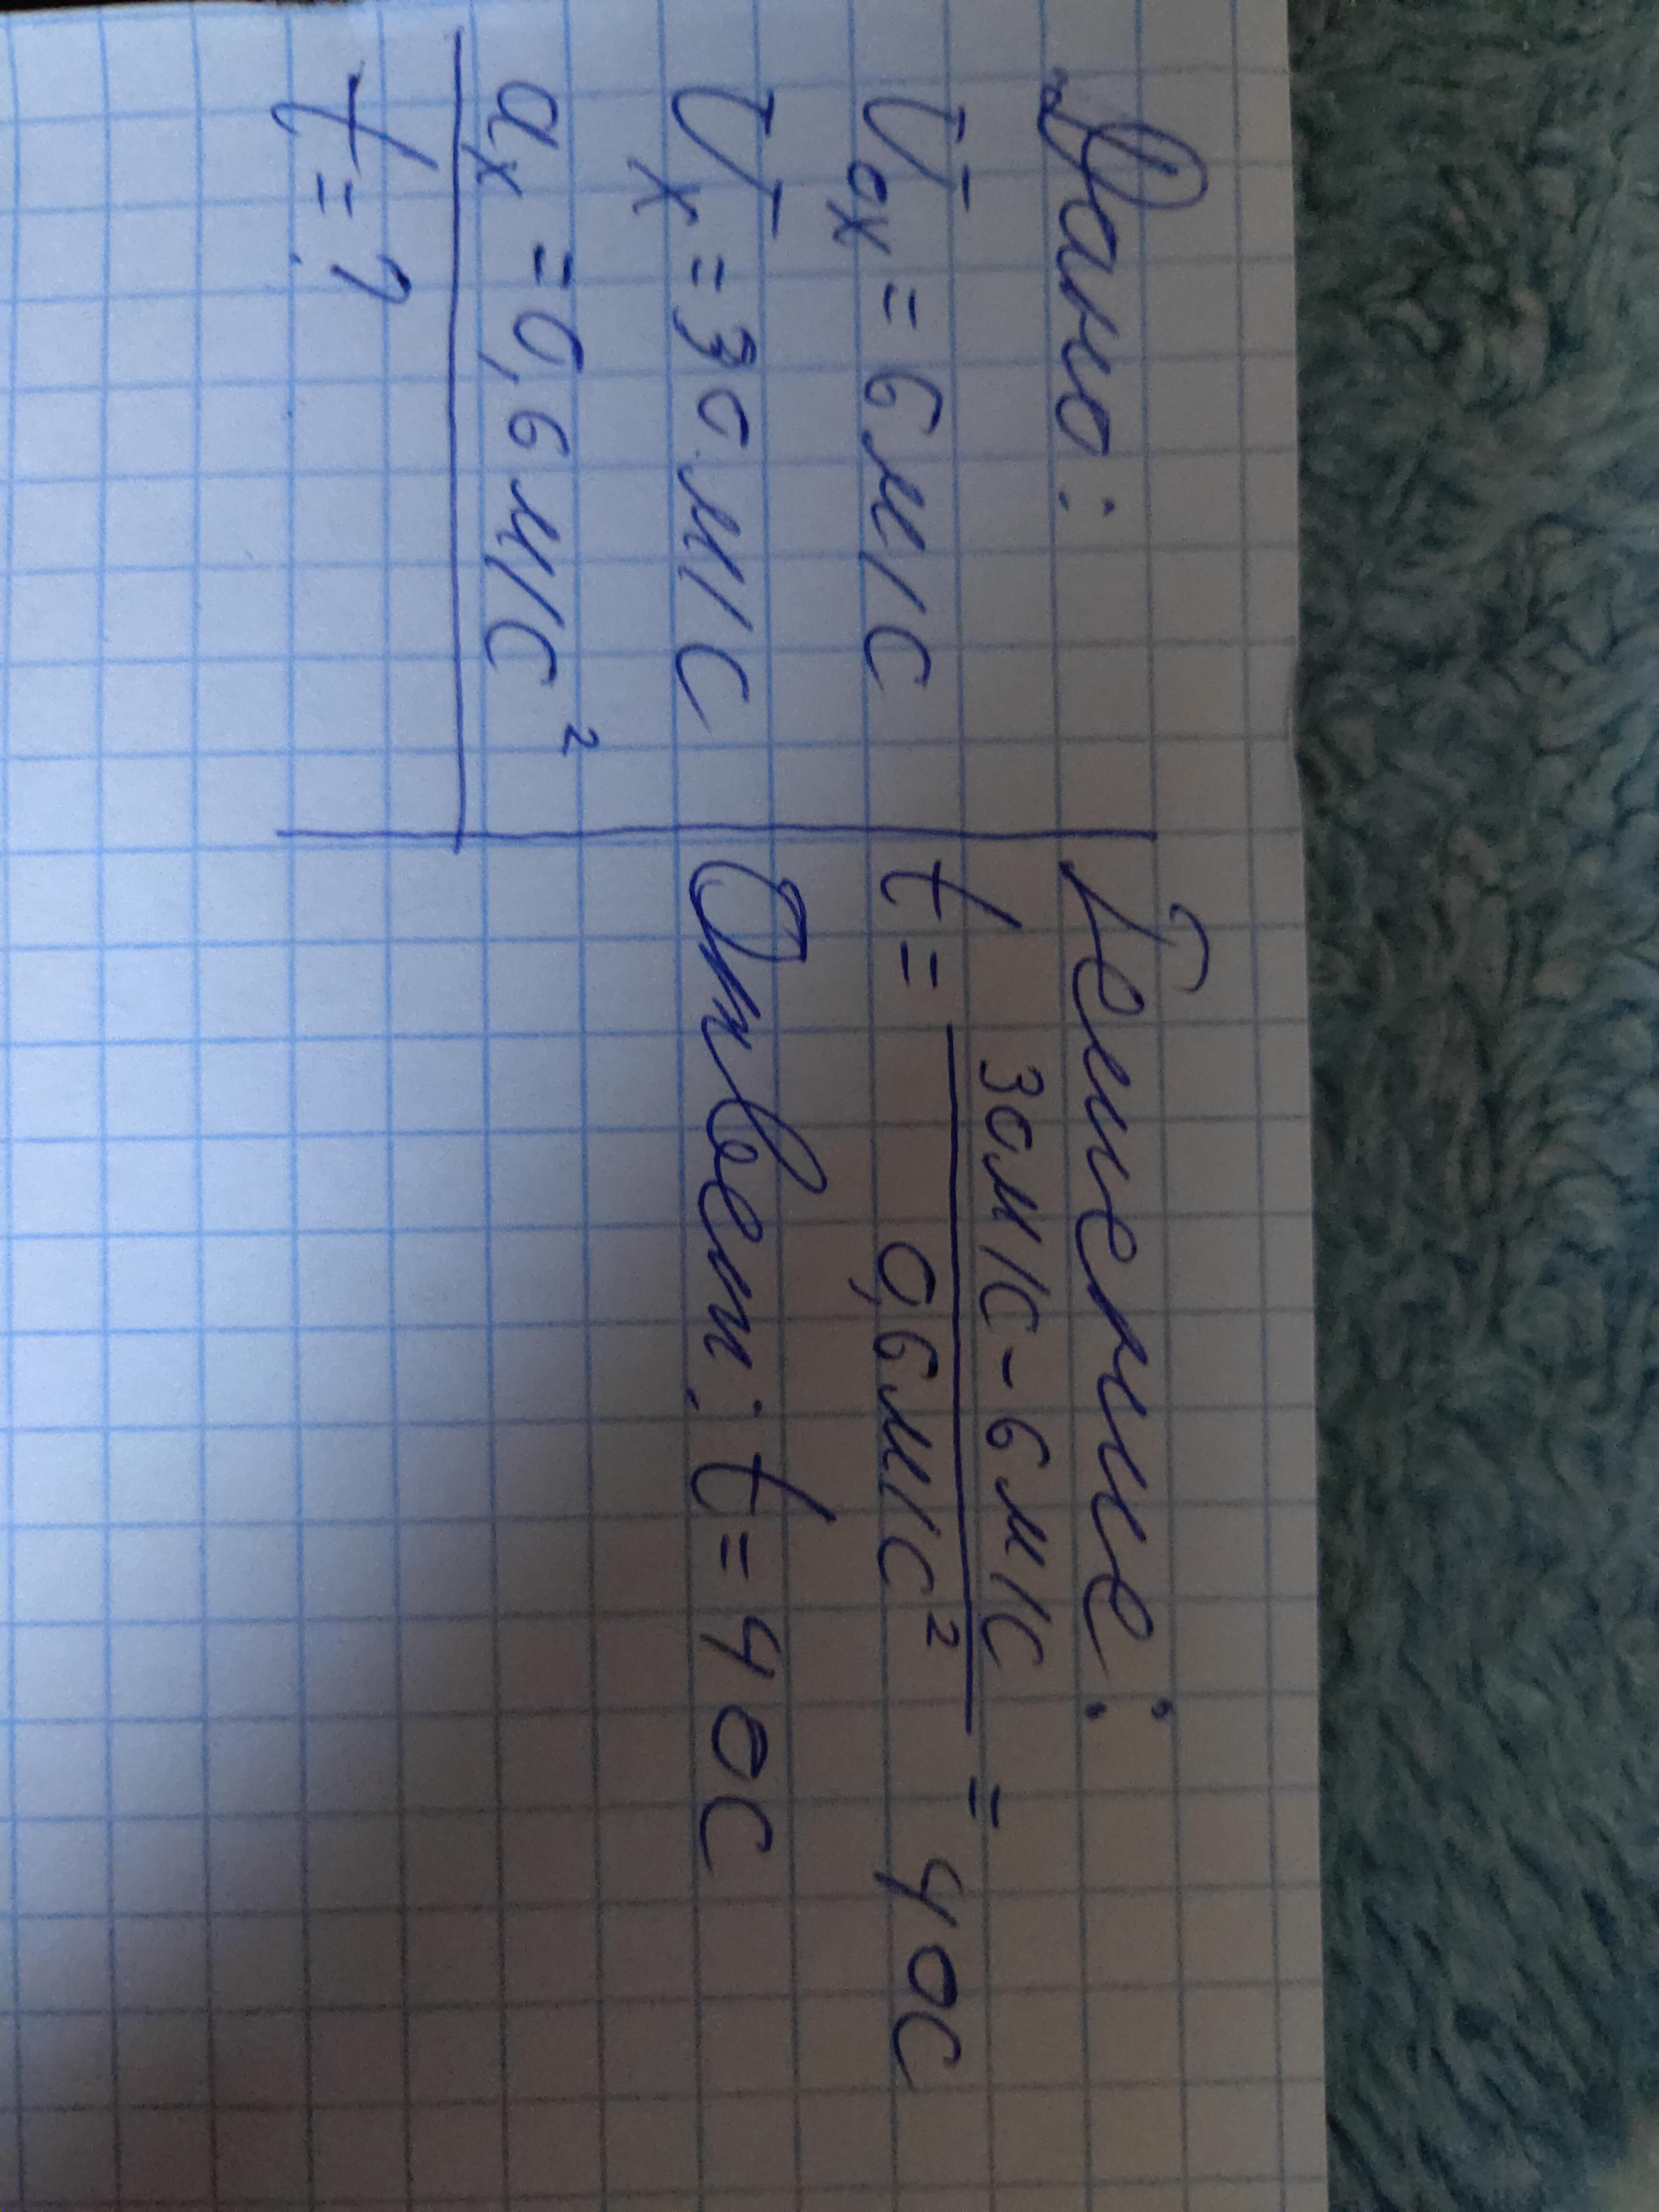 Дано:
V₀ₓ = 6 м/с
Vₓ = 30 м/с
aₓ = 0,6 м/с²
t = ?
Решение:
t = (30 м/с - 6 м/с) / (0,6 м/с²) = 40 с
Ответ: t = 40 с